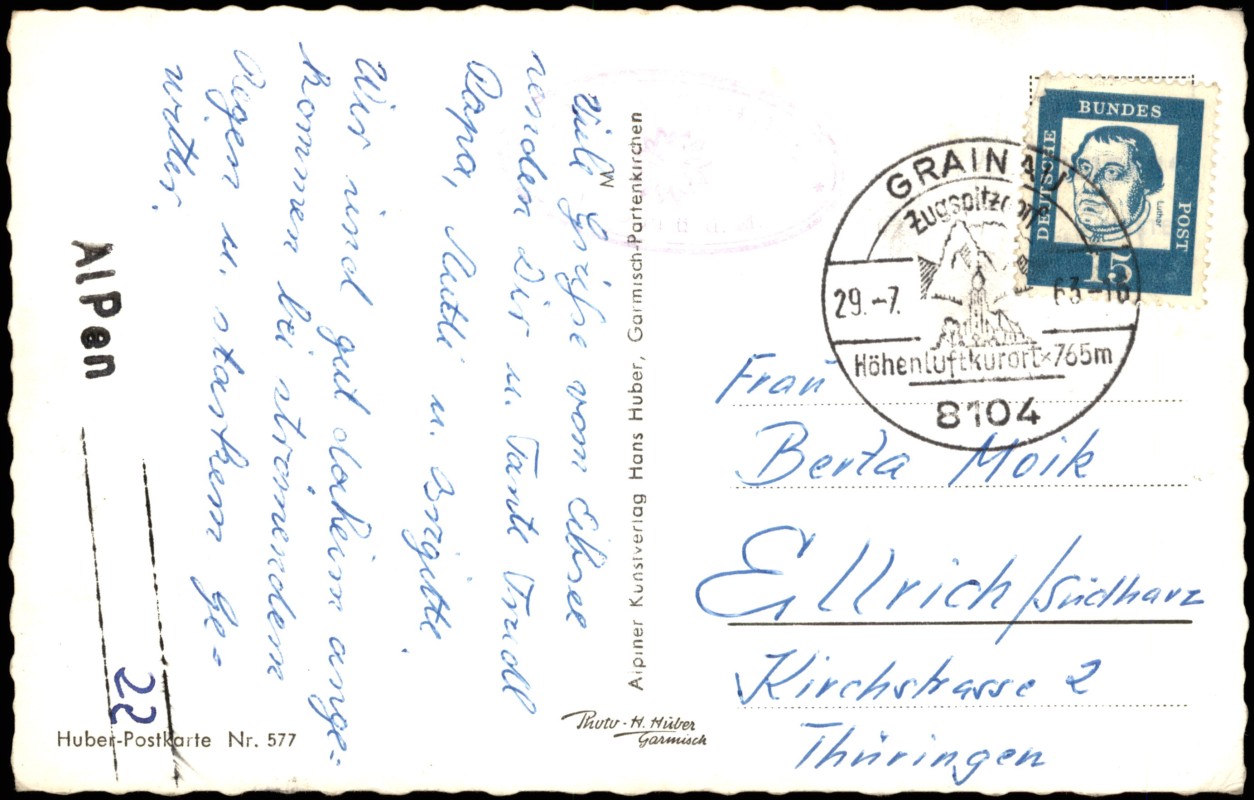 Viele Grüße vom Eibsee
senden Dir u. Tante Trudl
Papa, Mutti u. Brigitte.
Wir sind gut daheim ange-
kommen bei strömendem
Regen u. starkem Ge-
witter.
Alpen
22
Huber-Postkarte Nr. 577
Alpiner Kunstverlag Hans Huber, Garmisch-Partenkirchen
Photo-H. Huber
Garmisch
DEUTSCHE
BUNDES
POST
Luther
15
GRAINAU
Zugspitzdorf
29.-7. 63-18
Höhenluftkurort×765m
8104
Frau
Berta Moik
Ellrich/Südharz
Kirchstrasse 2
Thüringen